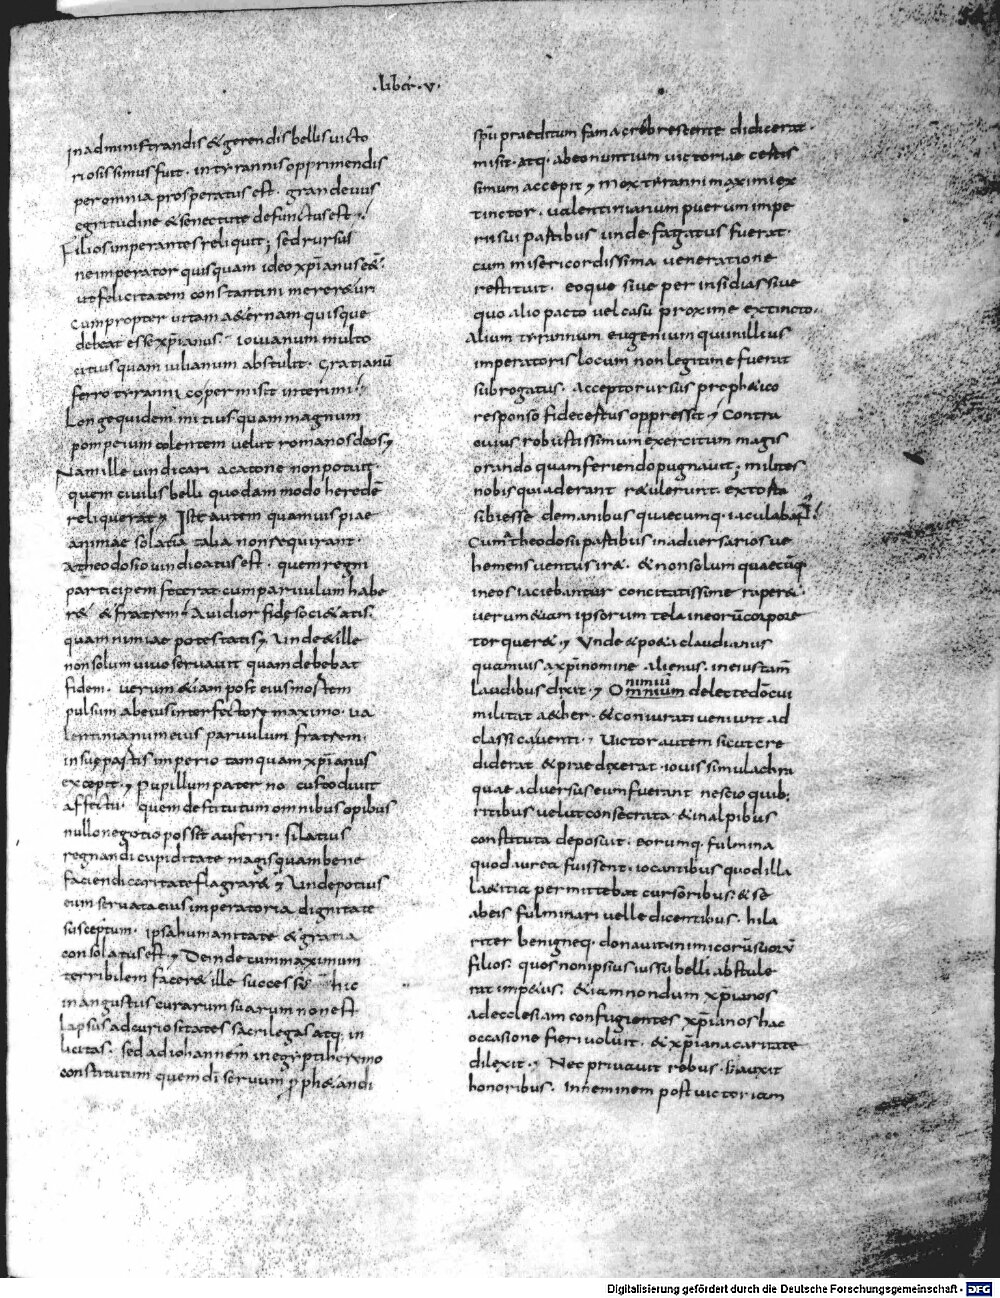 .liber.v.
in administrandis & gerendis bellis victo
riosissimus fuit. in tyrannis opprimendis
per omnia prosperatus est. grandevus
egritudine & senectute defunctus est.
Filios imperantes reliquit; sed rursus
ne imperator quisquam ideo xp̄ianus e&̄.
ut felicitatem constantini merer&ur
cum propter vitam a&ernam quisque
debeat esse xp̄ianus. iovianum multo
citius quam iulianum abstulit. Gratianū
ferro tyranni co permisit interimi.
Longe quidem mitius quam magnum
pompeium colentem velut romanos deos
Nam ille vindicari a catone non potuit.
quem civilis belli quodam modo heredē
reliquerat. Iste autem quamvis piae
animae solatia talia non requirant.
a theodosio vindicatus est. quem regni
participem fecerat cum parvulum habe
r& & fratrem. Avidior fide soci&atis.
quam nimiae potestatis. Unde & ille
non solum vivo servavit quam debebat
fidem. verum &iam post eius mortem
pulsum ab eius interfectore maximo. va
lentinianum eius parvulum fratrem.
in sue partis imperio tamquam xp̄ianus
excepit. Pupillum pater no custodivit
affectu. quem destitutum omnibus opibus
nullo negotio posset auferri. si latius
regnandi cupiditate magis quam bene
faciendi caritate flagrar&. Unde potius
eum servata eius imperatoria dignitate
susceptum. ipsa humanitate & gratia
consolatus est. Deinde cum maximum
terribilem facer& ille successus hic
in angustus curarum suarum non est
lapsus ad curiositates sacrilegas atq. in
licitas. sed ad iohannem in egypti heremo
constitutum quem dī servum proph&andi
spū praeditum fama crebrescente didicerat.
misit. atq. ab eo nuntium victoriae certis
simum accepit. Mox tyranni maximi ex
tinctor. valentinianum puerum impe
rii sui partibus unde fugatus fuerat.
cum misericordissima veneratione
restituit. eoque sive per insidias sive
quo alio pacto vel casu proxime extincto.
Alium tyrannum eugenium qui in illius
imperatoris locum non legitime fuerat
subrogatus. accepto rursus proph&ico
responso fide certus oppressit. Contra
cuius robustissimum exercitum magis
orando quam feriendo pugnavit; milites
nobis qui aderant r&ulerunt. extorta
sibi esse de manibus quaecumq. iaculabant̄
Cum a theodosii partibus in adversarios ve
hemens ventus ir&. & non solum quaecūq.
in eos iaciebantur concitatissime raper&.
verum &iam ipsorum tela in eorū corpore
torquer&. Unde & po&a claudianus
quamvis a xp̄i nomine alienus. in eius tam̄
laudibus dixit. O nimiū omnium delecte dō cui
militat a&her. & coniurati veniunt ad
classica venti. Victor autem sicut cre
diderat & praedixerat. iovis simulachra
quae adversus eum fuerant nescio quib;
ritibus velut consecrata. & in alpibus
constituta deposuit. eorumq. fulmina
quod aurea fuissent. iocantibus quod illa
la&itia permittebat cursoribus. & se
ab eis fulminari velle dicentibus. hila
riter benigneq. donavit. inimicorū suorū
filios. quos non ipsius iussu belli abstule
rat imp&us. &iam nondum xp̄ianos
ad ecclesiam confugientes xp̄ianos hac
occasione fieri voluit. & xp̄iana caritate
dilexit. Nec privavit rebus. & auxit
honoribus. In neminem post victoriam
Digitalisierung gefördert durch die Deutsche Forschungsgemeinschaft - DFG